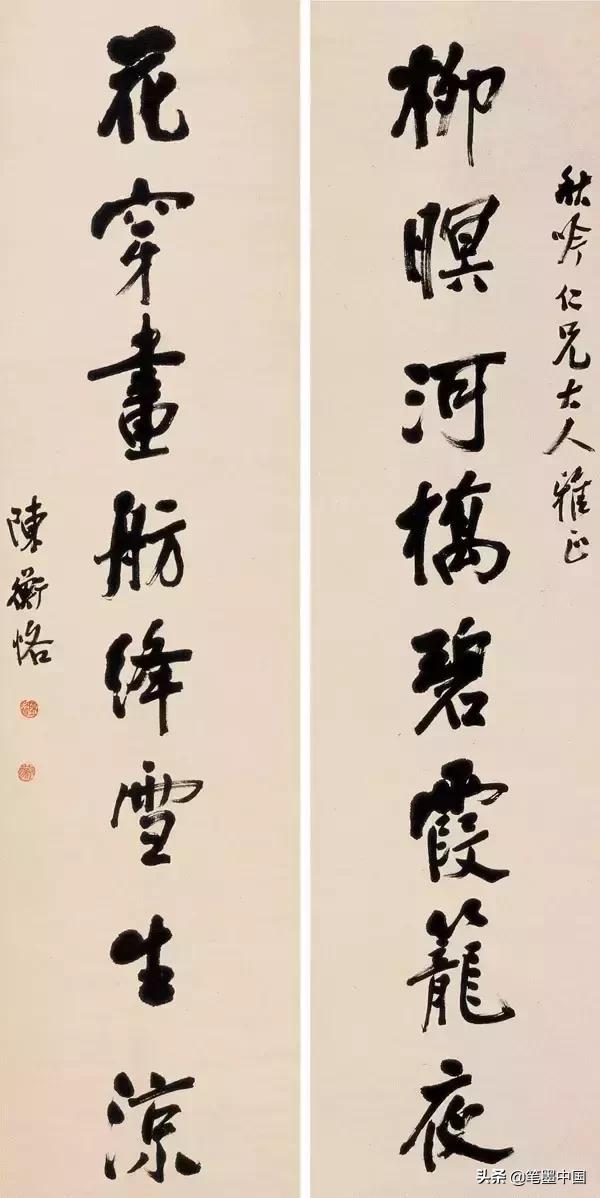 秋吟仁兄大人雅正
柳暝河橋碧霞籠夜
花穿畫舫絳雪生涼
陳衡恪
头条@笔墨中国